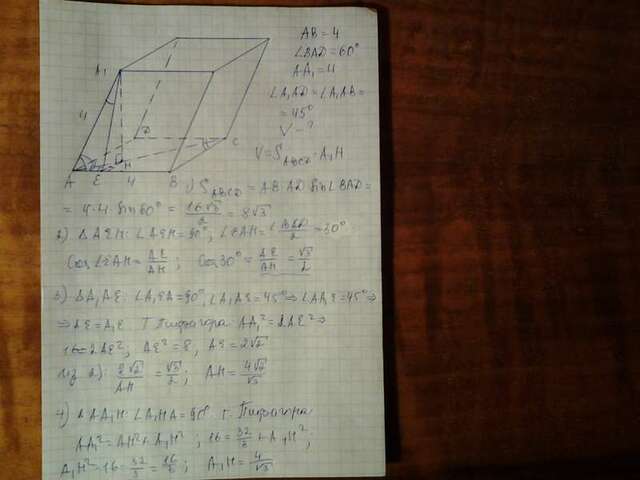 AB=4
∠BAD=60°
AA₁=4
∠A₁AD=∠A₁AB=
=45°
V-?
V=S ABCD · A₁H
A₁
4
D
H
C
A E 4 B
1) S ABCD = AB·AD sin∠BAD=
= 4·4·sin60° = 16√3/2 = 8√3
2) △AEH: ∠AEH=90°, ∠EAH=∠BAD/2=30°
Cos∠EAH=AE/AH; Cos30°=AE/AH=√3/2
3) △A₁AE: ∠A₁EA=90°, ∠A₁AE=45°⇒∠AA₁E=45°⇒
⇒AE=A₁E Т Пифагора AA₁²=2AE²⇒
16=2AE²; AE²=8, AE=2√2
из 2): 2√2/AH=√3/2; AH=4√2/√3
4) △AA₁H: ∠A₁HA=90° т. Пифагора
AA₁²=AH²+A₁H²; 16=32/3+A₁H²;
A₁H²=16-32/3=16/3; A₁H=4/√3